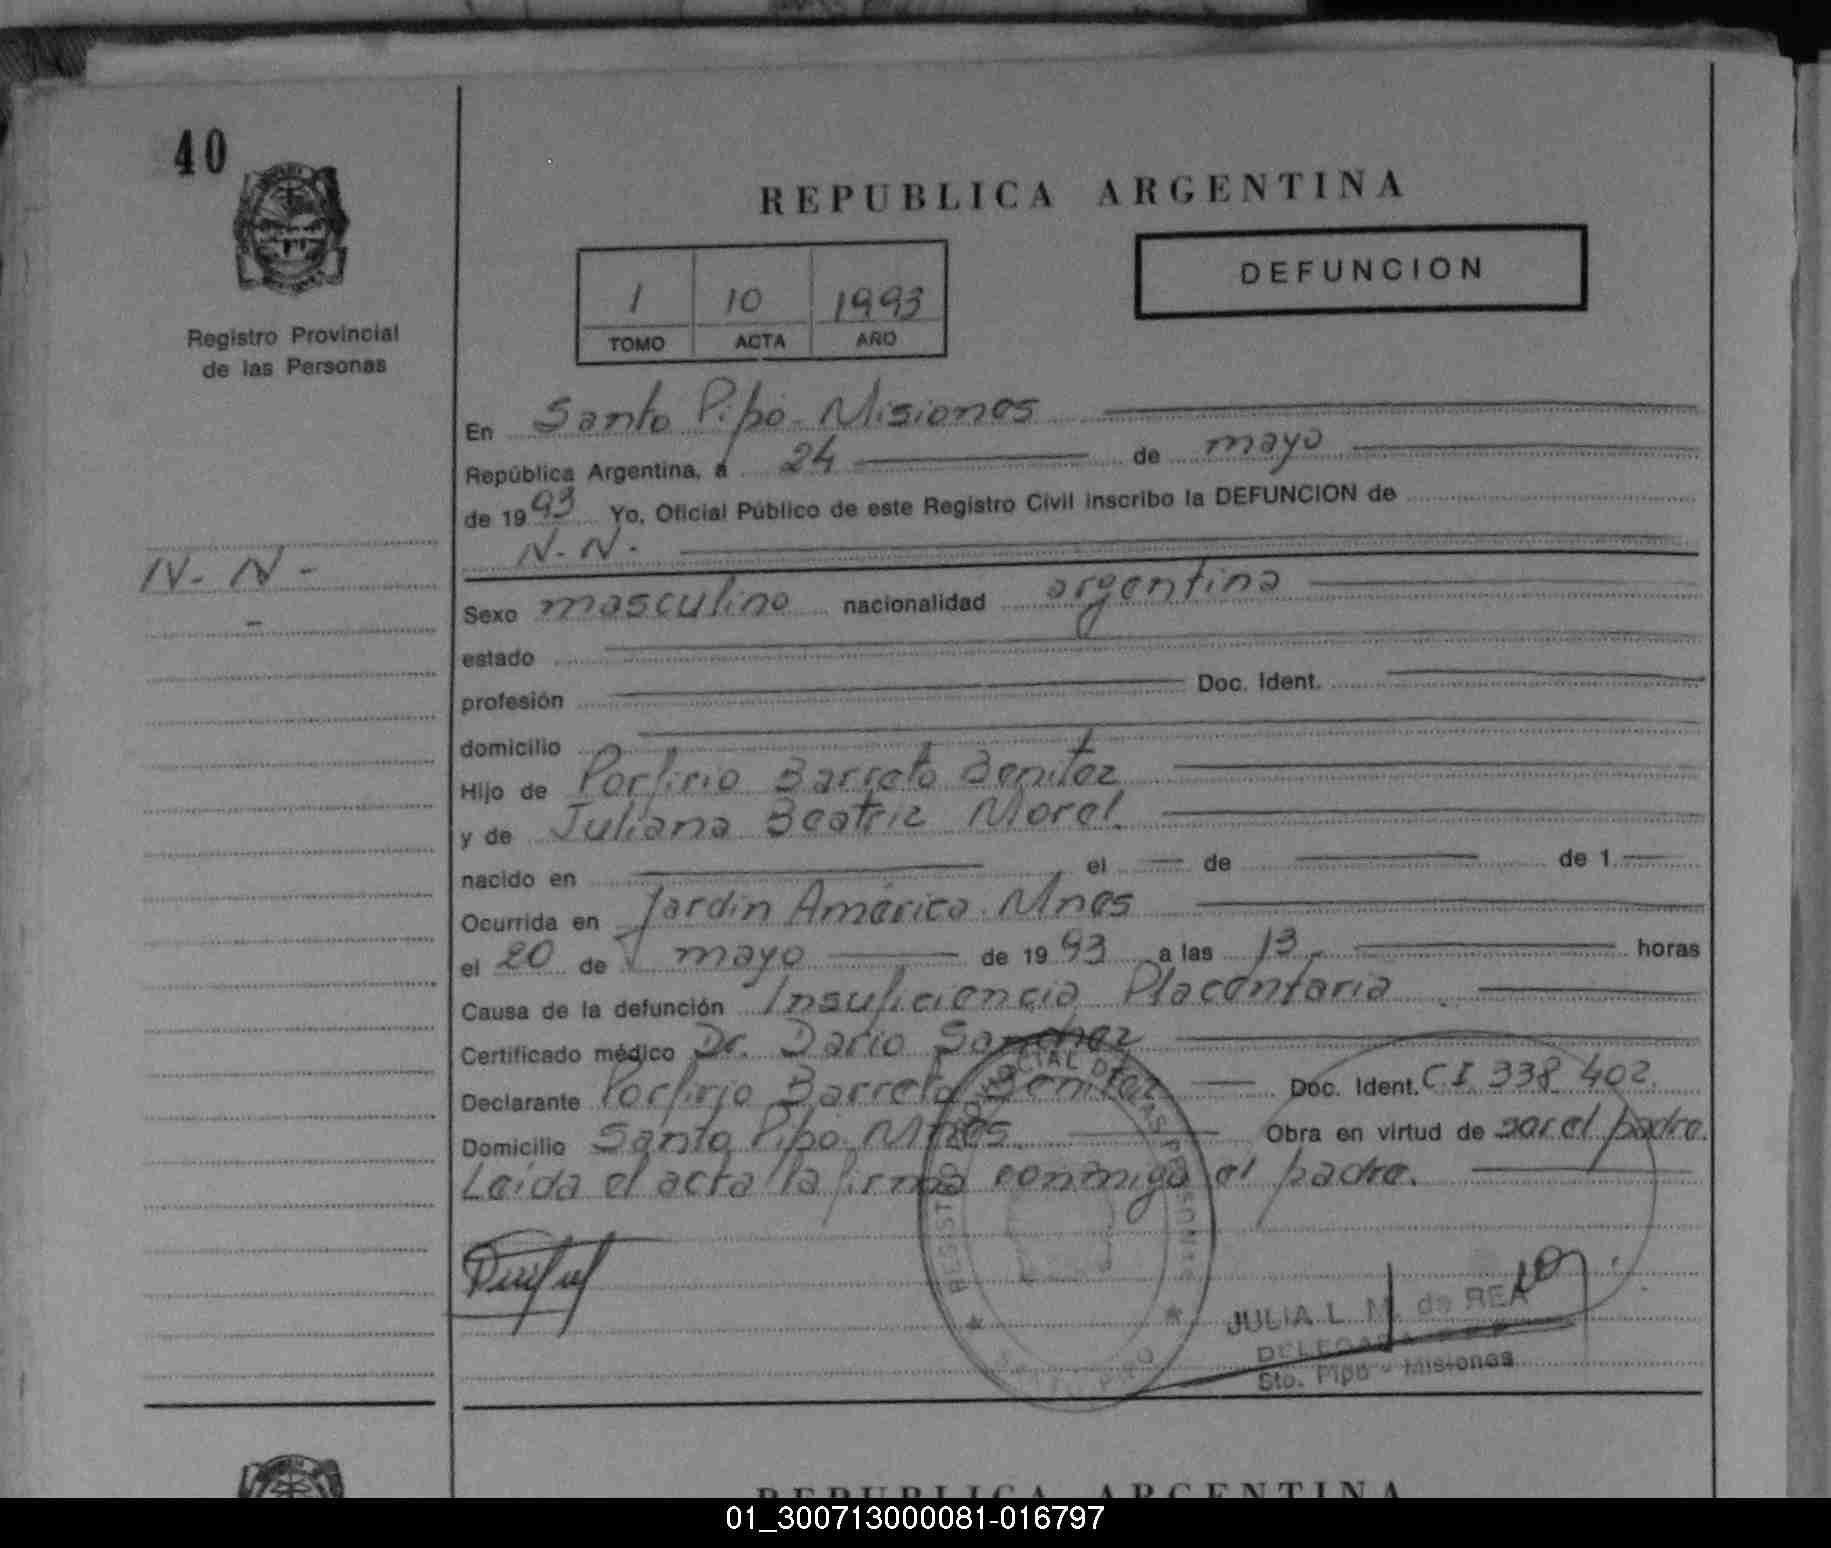 40
REPUBLICA ARGENTINA
DEFUNCION
1 10 1993
TOMO ACTA AÑO
Registro Provincial
de las Personas
En Santo Pipó - Misiones
República Argentina, a 24 de mayo
de 1993 Yo, Oficial Público de este Registro Civil inscribo la DEFUNCION de
N. N.
N. N.
Sexo masculino nacionalidad argentina
estado
profesión Doc. Ident.
domicilio
Hijo de Porfirio Barreto Benitez
y de Juliana Beatriz Morel.
nacido en el de de 1
Ocurrida en Jardin América. Mnes
el 20 de mayo de 1993 a las 13 horas
Causa de la defunción Insuficiencia Placentaria
Certificado médico Dr. Dario Sanchez
Declarante Porfirio Barreto Benitez Doc. Ident. C.I. 338 402.
Domicilio Santo Pipo. Mnes. Obra en virtud de ser el padre.
Leida el acta la firma conmigo el padre.
JULIA L. M. de REA
DELEGADA
Sto. Pipo - Misiones
REPUBLICA ARGENTINA
01_300713000081-016797